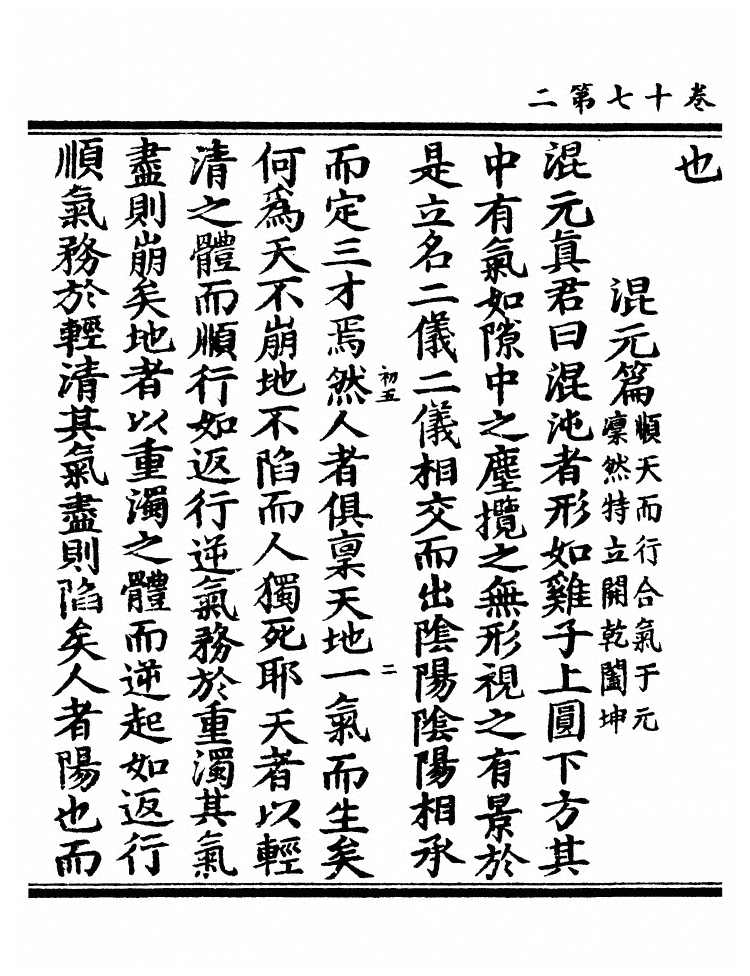 卷十七第二
也
混元篇
順天而行合氣于元
凛然特立開乾闔坤
混元真君曰混沌者形如雞子上圓下方其
中有氣如隙中之塵攬之無形視之有景於
是立名二儀二儀相交而出陰陽陰陽相承
初五
二
而定三才焉然人者俱稟天地一氣而生矣
何爲天不崩地不陷而人獨死耶天者以輕
清之體而順行如返行逆氣務於重濁其氣
盡則崩矣地者以重濁之體而逆起如返行
順氣務於輕清其氣盡則陷矣人者陽也而